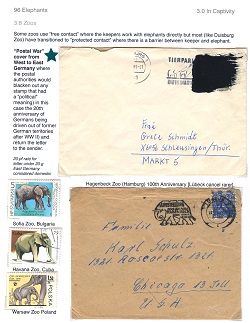 96 Elephants
3.0 In Captivity
3.5 Zoos
Some zoos use "free contact" where the keepers work with elephants directly but most (like Duisburg
Zoo) have transitioned to "protected contact" where there is a barrier between keeper and elephant.
"Postal War"
cover from
West to East
Germany where
the postal
authorities would
blacken out any
stamp that had
a "political"
meaning) in this
case the 20th
anniversary of
Germans being
driven out of former
German territories
after WW II) and
return the letter
to the sender.
20 pf rate for
letter under 20 g
East Germany
considered domestic
TIERPARK
Frau
Grete Schmidt
Schleusingen/Thür.
MARKT 5
Sofia Zoo, Bulgaria
Havana Zoo, Cuba
Warsaw Zoo Poland
Hagenbeck Zoo (Hamburg) 100th Anniversary [Lubeck cancel rare]
Familie
Karl Schulz
Chicago
U.S.A